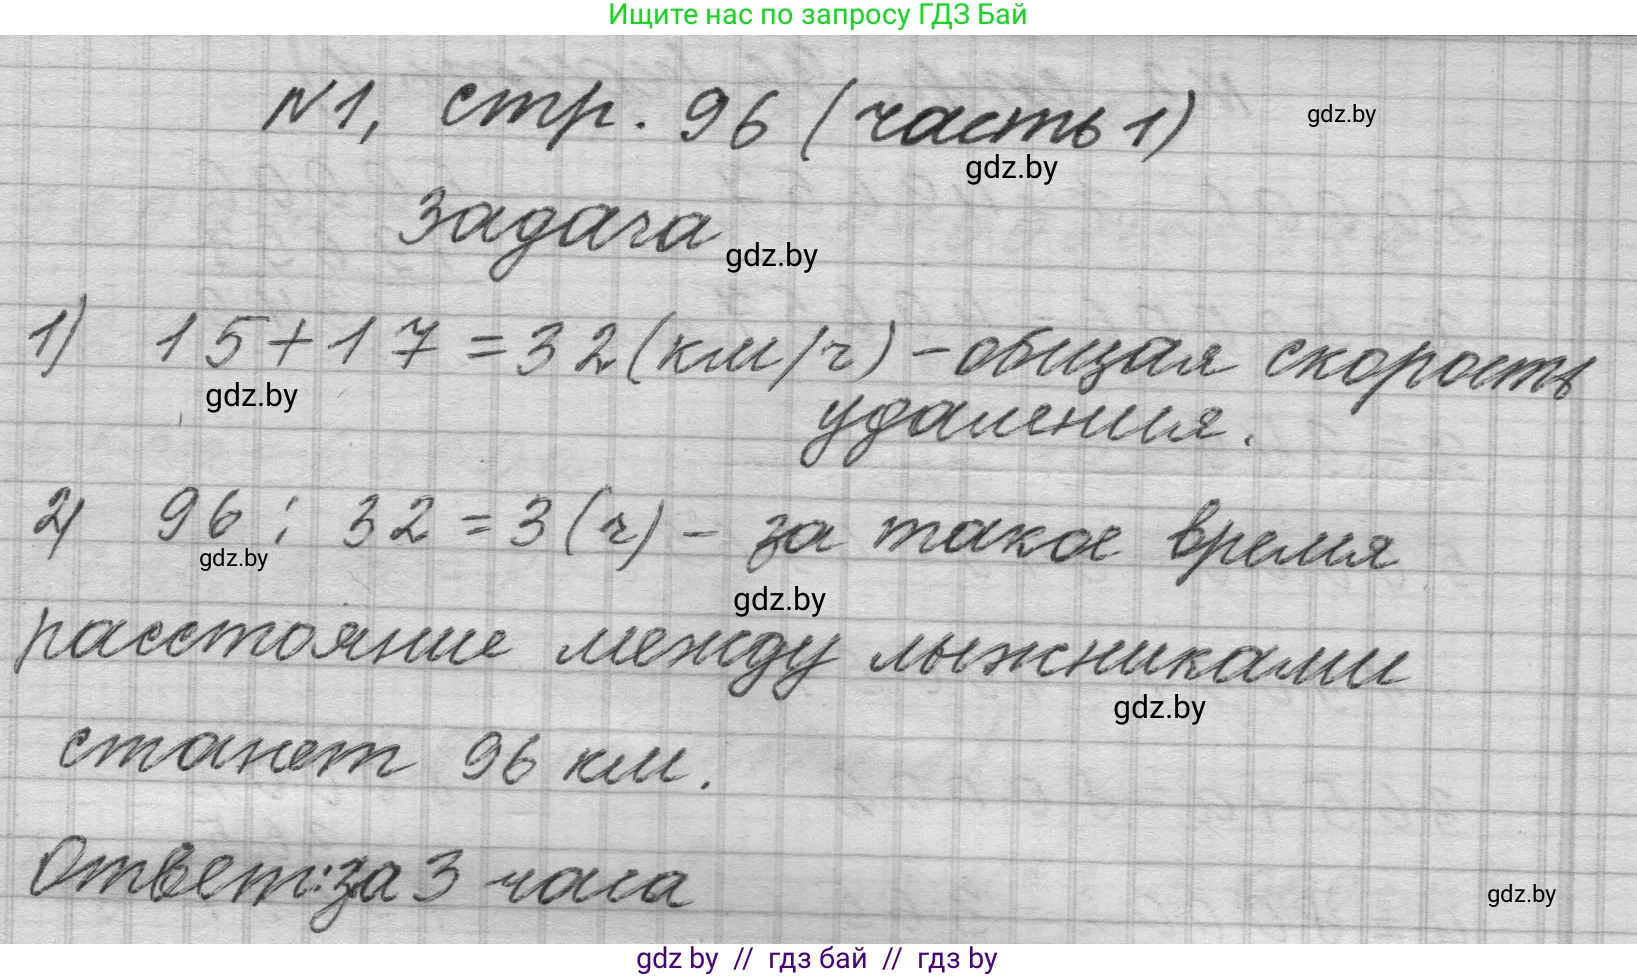 Ищите нас по запросу ГДЗ Бай
№1, стр. 96 (часть 1)
gdz.by
gdz.by
Задача
gdz.by
1) 15+17=32(км/ч) - общая скорость
gdz.by
удаления.
2) 96 : 32 = 3 (ч) - за такое время
gdz.by
gdz.by
расстояние между лыжниками
gdz.by
станет 96 км.
Ответ: за 3 часа
gdz.by
gdz by // гдз бай // гдз by